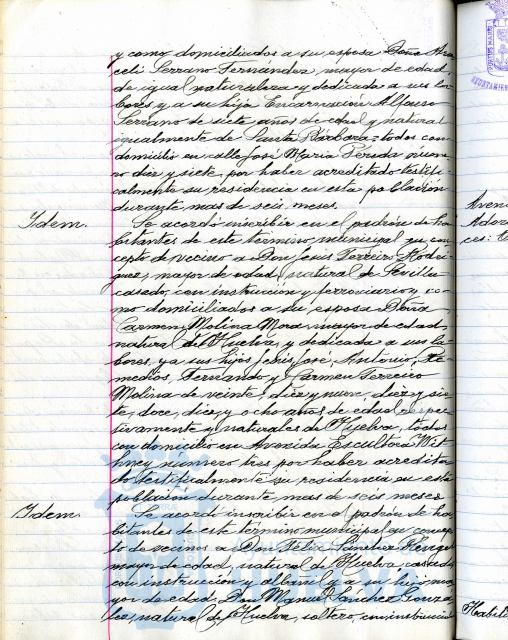 y como domiciliados a su esposa Doña Ara
celi Serrano Fernández, mayor de edad,
de igual naturaleza y dedicada a sus la-
bores, y a su hija Encarnación Alfonso
Serrano de siete años de edad y natural
igualmente de Santa Bárbara; todos con
domicilio en calle José Maria Péreda núme-
ro diez y siete, por haber acreditado testifi-
calmente su residencia en esta población
durante mas de seis meses.
Idem. Se acordó inscribir en el padrón de ha-
bitantes de este término municipal en con-
cepto de vecino a Don Jesus Ferreiro Rodri-
guez, mayor de edad, natural de Sevilla
casado, con instrucción y ferroviario y co-
mo domiciliados a su esposa Doña
Carmen Molina Mora, mayor de edad
natural de Huelva, y dedicada a sus la-
bores, y a sus hijos Jesús, José, Antonio, Re-
medios, Fernando y Carmen Ferreiro
Molina de veinte, diez y nueve, diez y sie-
te, doce, diez, y ocho años de edad respec-
tivamente y naturales de Huelva, todos
con domicilio en Avenida Escultora Wit-
hney número tres por haber acredita-
do testifialmente su residencia en esta
población durante mas de seis meses
Idem. Se acordó inscribir en el padrón de ha-
bitantes de este término municipal en concep-
to de vecinos a Don Felix Sánchez Rengel
mayor de edad, natural de Huelva, casado
con instrucción y albañil y a su hijo may-
or de edad Don Manuel Sánchez Gonza-
lez, natural de Huelva, soltero, con instrucción